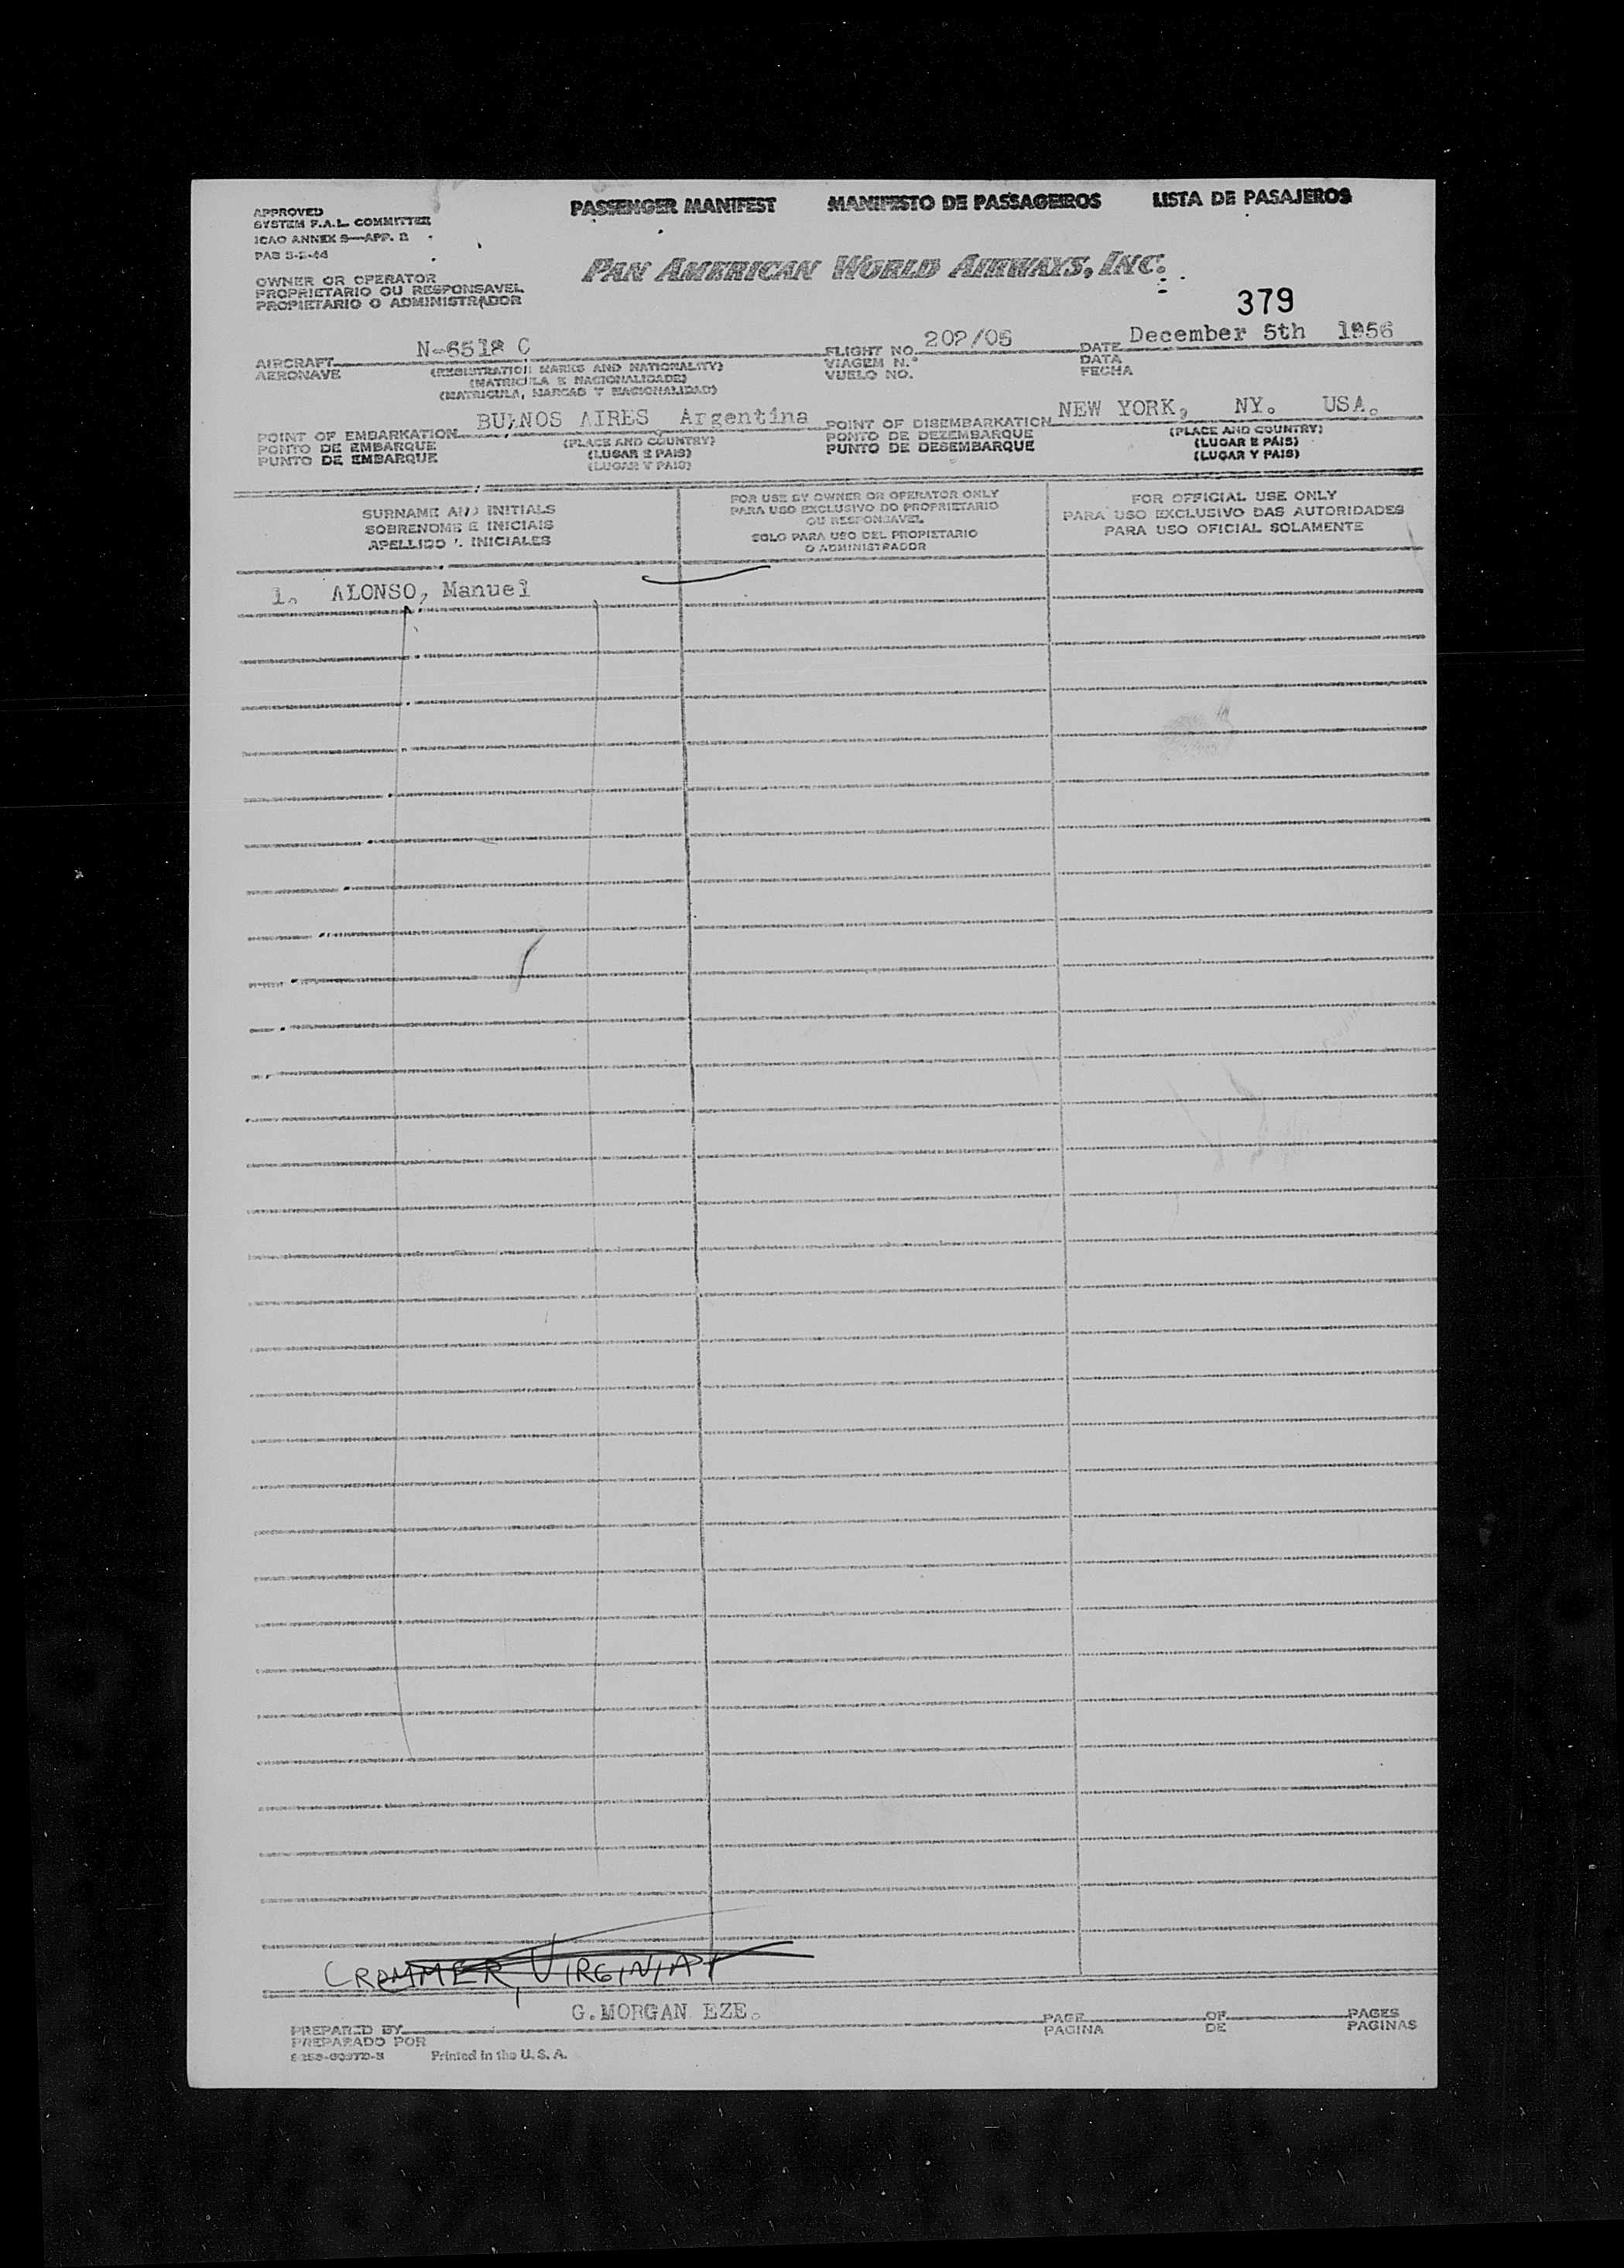 PASSENGER MANIFEST MANIFESTO DE PASSAGEIROS LISTA DE PASAJEROS
APPROVED
SYSTEM F.A.L. COMMITTEE
ICAO ANNEX 9—APP. 2
OWNER OR OPERATOR
PROPRIETARIO OU RESPONSAVEL
PROPIETARIO O ADMINISTRADOR
PAN AMERICAN WORLD AIRWAYS, INC.
379
AIRCRAFT N-6518 C FLIGHT NO. 202/05 DATE December 5th 1956
AERONAVE (REGISTRATION MARKS AND NATIONALITY) VIAGEM N.º DATA
(MATRICULA E NACIONALIDADE) VUELO NO. FECHA
(MATRICULA, MARCAS Y NACIONALIDAD)
POINT OF EMBARKATION BUENOS AIRES Argentina POINT OF DISEMBARKATION NEW YORK, NY. USA.
PONTO DE EMBARQUE (PLACE AND COUNTRY) PONTO DE DEZEMBARQUE (PLACE AND COUNTRY)
PUNTO DE EMBARQUE (LUGAR E PAIS) PUNTO DE DESEMBARQUE (LUGAR E PAIS)
(LUGAR Y PAIS) (LUGAR Y PAIS)
SURNAME AND INITIALS
SOBRENOME E INICIAIS
APELLIDO Y INICIALES
FOR USE BY OWNER OR OPERATOR ONLY
PARA USO EXCLUSIVO DO PROPRIETARIO
OU RESPONSAVEL
SOLO PARA USO DEL PROPIETARIO
O ADMINISTRADOR
FOR OFFICIAL USE ONLY
PARA USO EXCLUSIVO DAS AUTORIDADES
PARA USO OFICIAL SOLAMENTE
1. ALONSO, Manuel
CRAMMER, VIRGINIA
PREPARED BY G.MORGAN EZE. PAGE OF PAGES
PREPARADO POR PAGINA DE PAGINAS
Printed in the U. S. A.